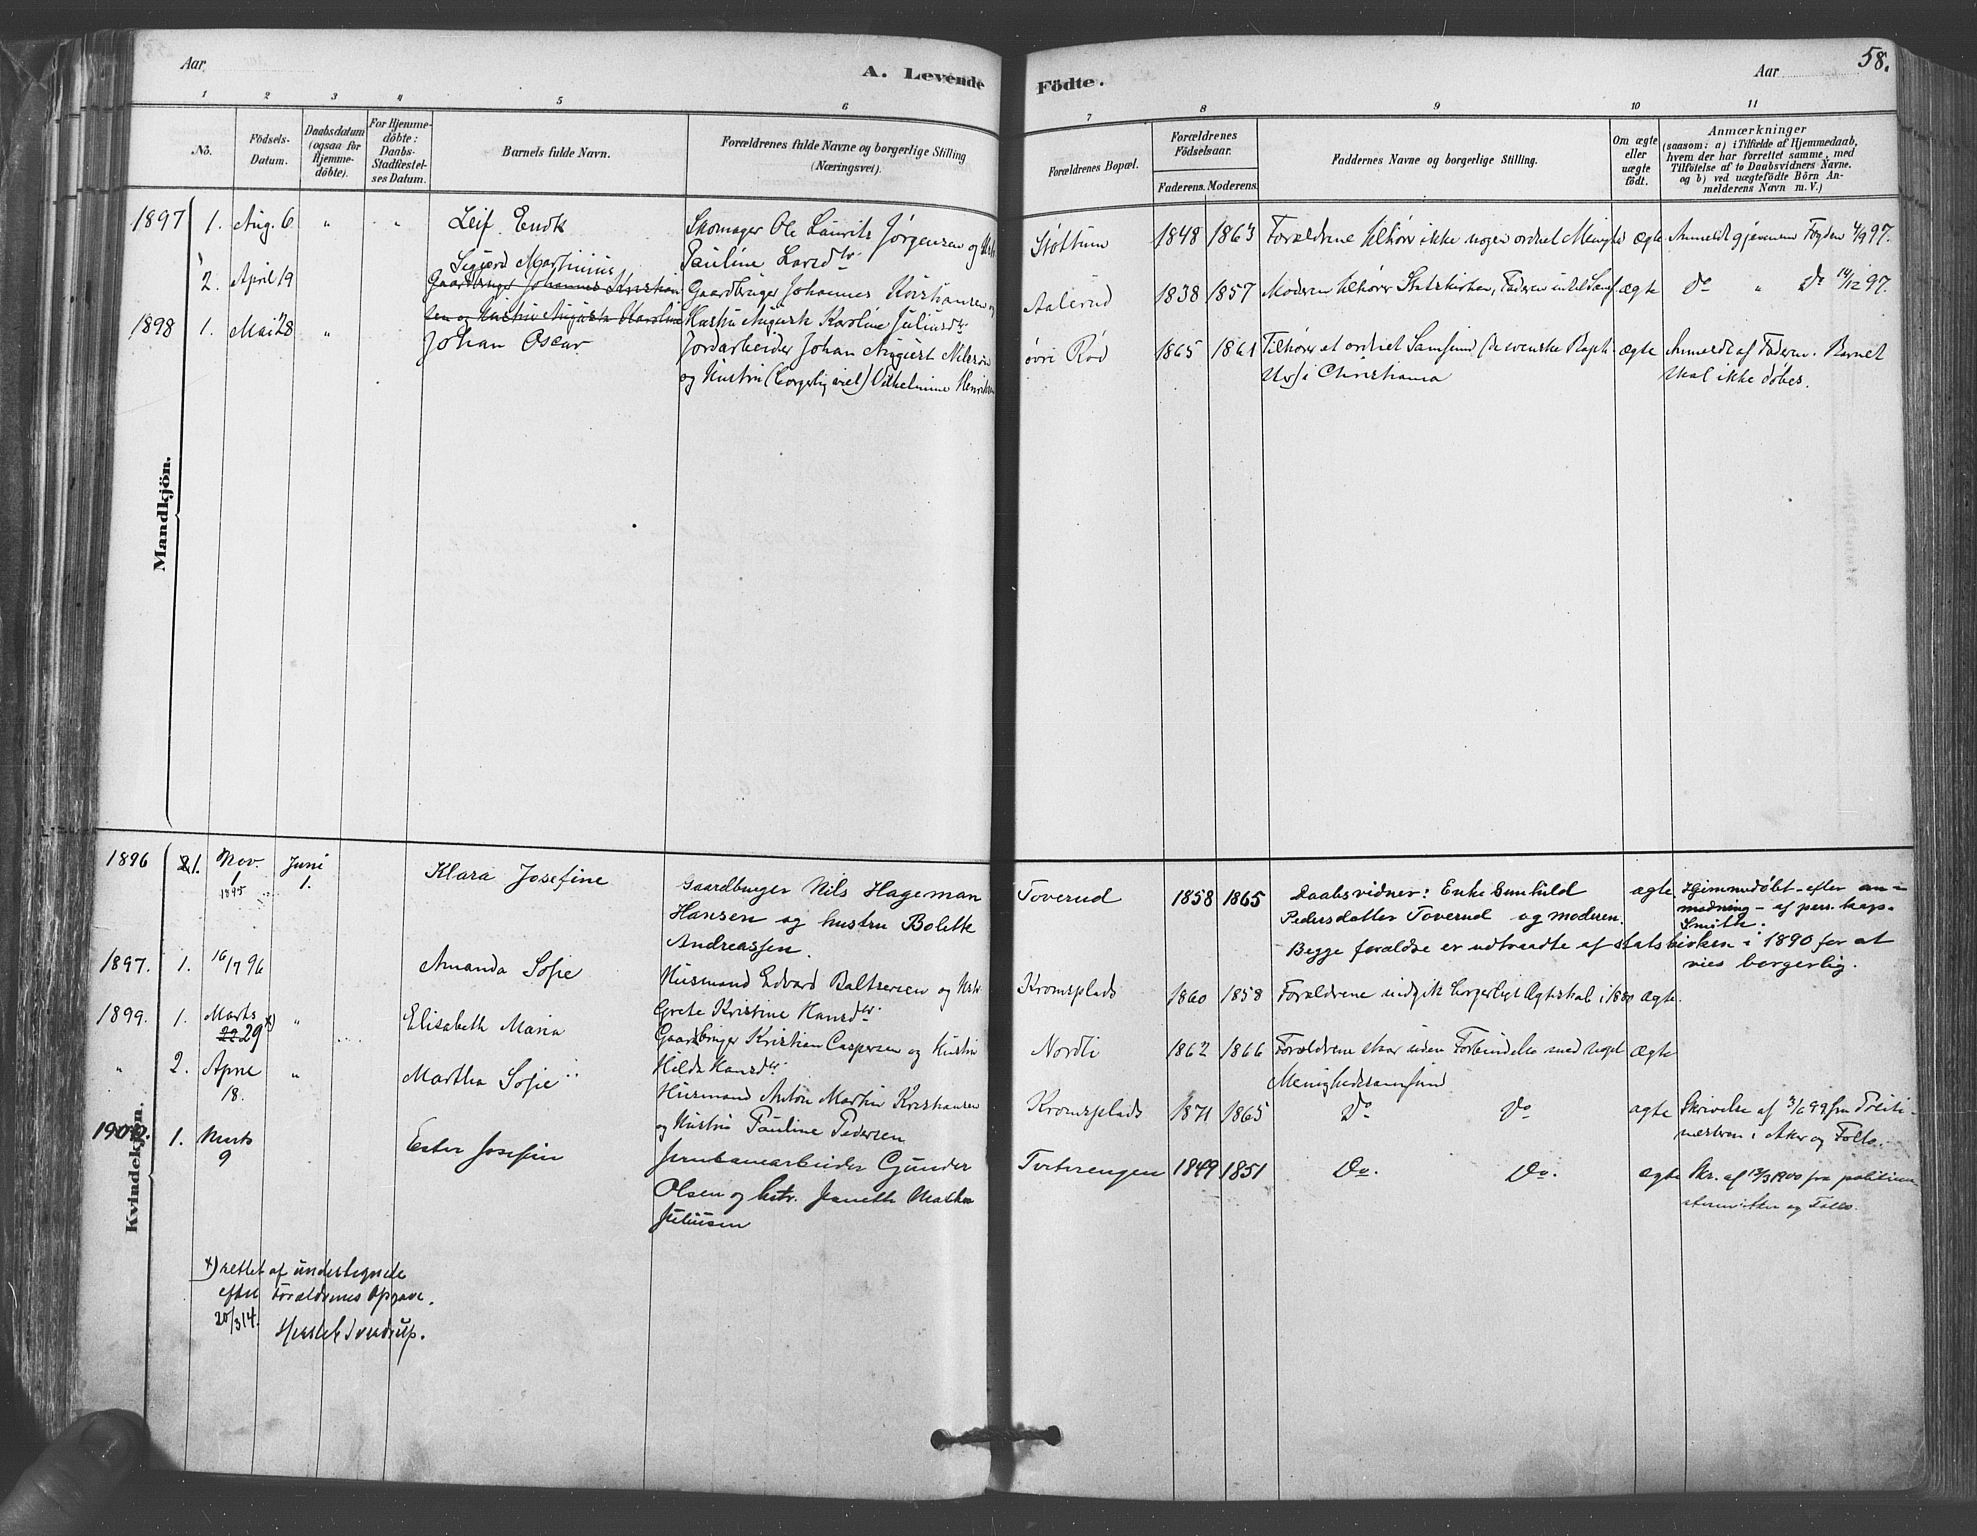 Aar
A. Levende
Födte.
Aar
58.
1 2 3 4 5 6 7 8 9 10 11
No.
Födsels-Datum.
Daabsdatum (ogsaa for Hjemme-döbte).
For Hjemme-döbte: Daabs-Stadfæstel-ses Datum.
Barnets fulde Navn.
Forældrenes fulde Navne og borgerlige Stilling (Næringsvei).
Forældrenes Bopæl.
Forældrenes Födselsaar.
Faderens. Moderens.
Faddernes Navne og borgerlige Stilling.
Om ægte eller uægte födt.
Anmærkninger
(saasom: a) i Tilfælde af Hjemmedaab,
hvem der har forrettet samme, med
Tilföielse af to Daabsvidners Navne.
og b) ved uægtefödte Börn An-
melderens Navn m. V.)
Mandkjön.
1897 1. Aug. 6 " " Leif Skomager Ole Laurits Jørgensen og
Pauline Larsdtr Støttum 1848 1863 Forældrene tilhører ikke nogen ordnet ægte Anmeldt gjennem Fogden 4/9 97.
2. April 19 Sigurd Martinius
Gaardbruger Johannes Kristian
sen og Hustru Augusta Karoline
Gaardbruger Johannes Kristiansen og
Hustru Augusta Karoline Juliusdtr Aalerud 1838 1857 Moderen tilhører Statskirken, Faderen ægte Do " Do 14/12 97.
1898 1. Mai 28 " Johan Oscar Jordarbeider Johan August Nilsson
og Hustru (borgerlig viet) Vilhelmine øvre Rød 1865 1861 Tilhører et ordnet Samfund (de svenske Bapti
i Christiania ægte Anmeldt af Faderen. Barnet
skal ikke døbes.
Kvindekjön.
1896 1. Nov. 1 1895 Juni 1. Klara Josefine Gaardbruger Nils Hageman
Hansen og hustru Bolette
Andreassen. Toverud 1858 1865 Daabsvidner: Enke Gunhild
Pedersdatter Toverud og moderen. ægte Hjemmedøbt efter an-
modning af pers. kap.
Smith.
Begge forældre er udtraadte af statskirken i 1890 for at
vies borgerlig.
1897. 1. 16/7 96 Amanda Sofie Husmand Edvard Baltsersen og Hstr
Grete Kristine Hansdtr. Kromsplads 1860 1858 Forældrene indgik borgerligt Ægteskab i 1880 ægte.
1899. 1. Marts 22 29 x) " Elisabeth Maria Gaardbruger Kristian Caspersen og Hustru
Hilda Hansdtr Nordli 1862 1866 Forældrene staar uden Forbindelse med noget
Menighedssamfund ægte
" 2. Apri 18. " Martha Sofie Husmand Anton Martin Kristiansen
og Hustru Pauline Pedersen Kromsplads 1871 1865 Do Do ægte Skrivelse af 3/6 99 fra Politi-
mesteren i Aker og Follo.
1900. 1. Marts 9 Ester Josefine Jernbanearbeider Gunder
Olsen og hstr. Jeanette Mathea
Juliusen 1849 1851 Do. Do. ægte Skr. af 12/3 1900 fra politime
steren i Aker og Follo.
x) rettet af undertegnede
efter Forældrenes Opgave.
20/3 14.